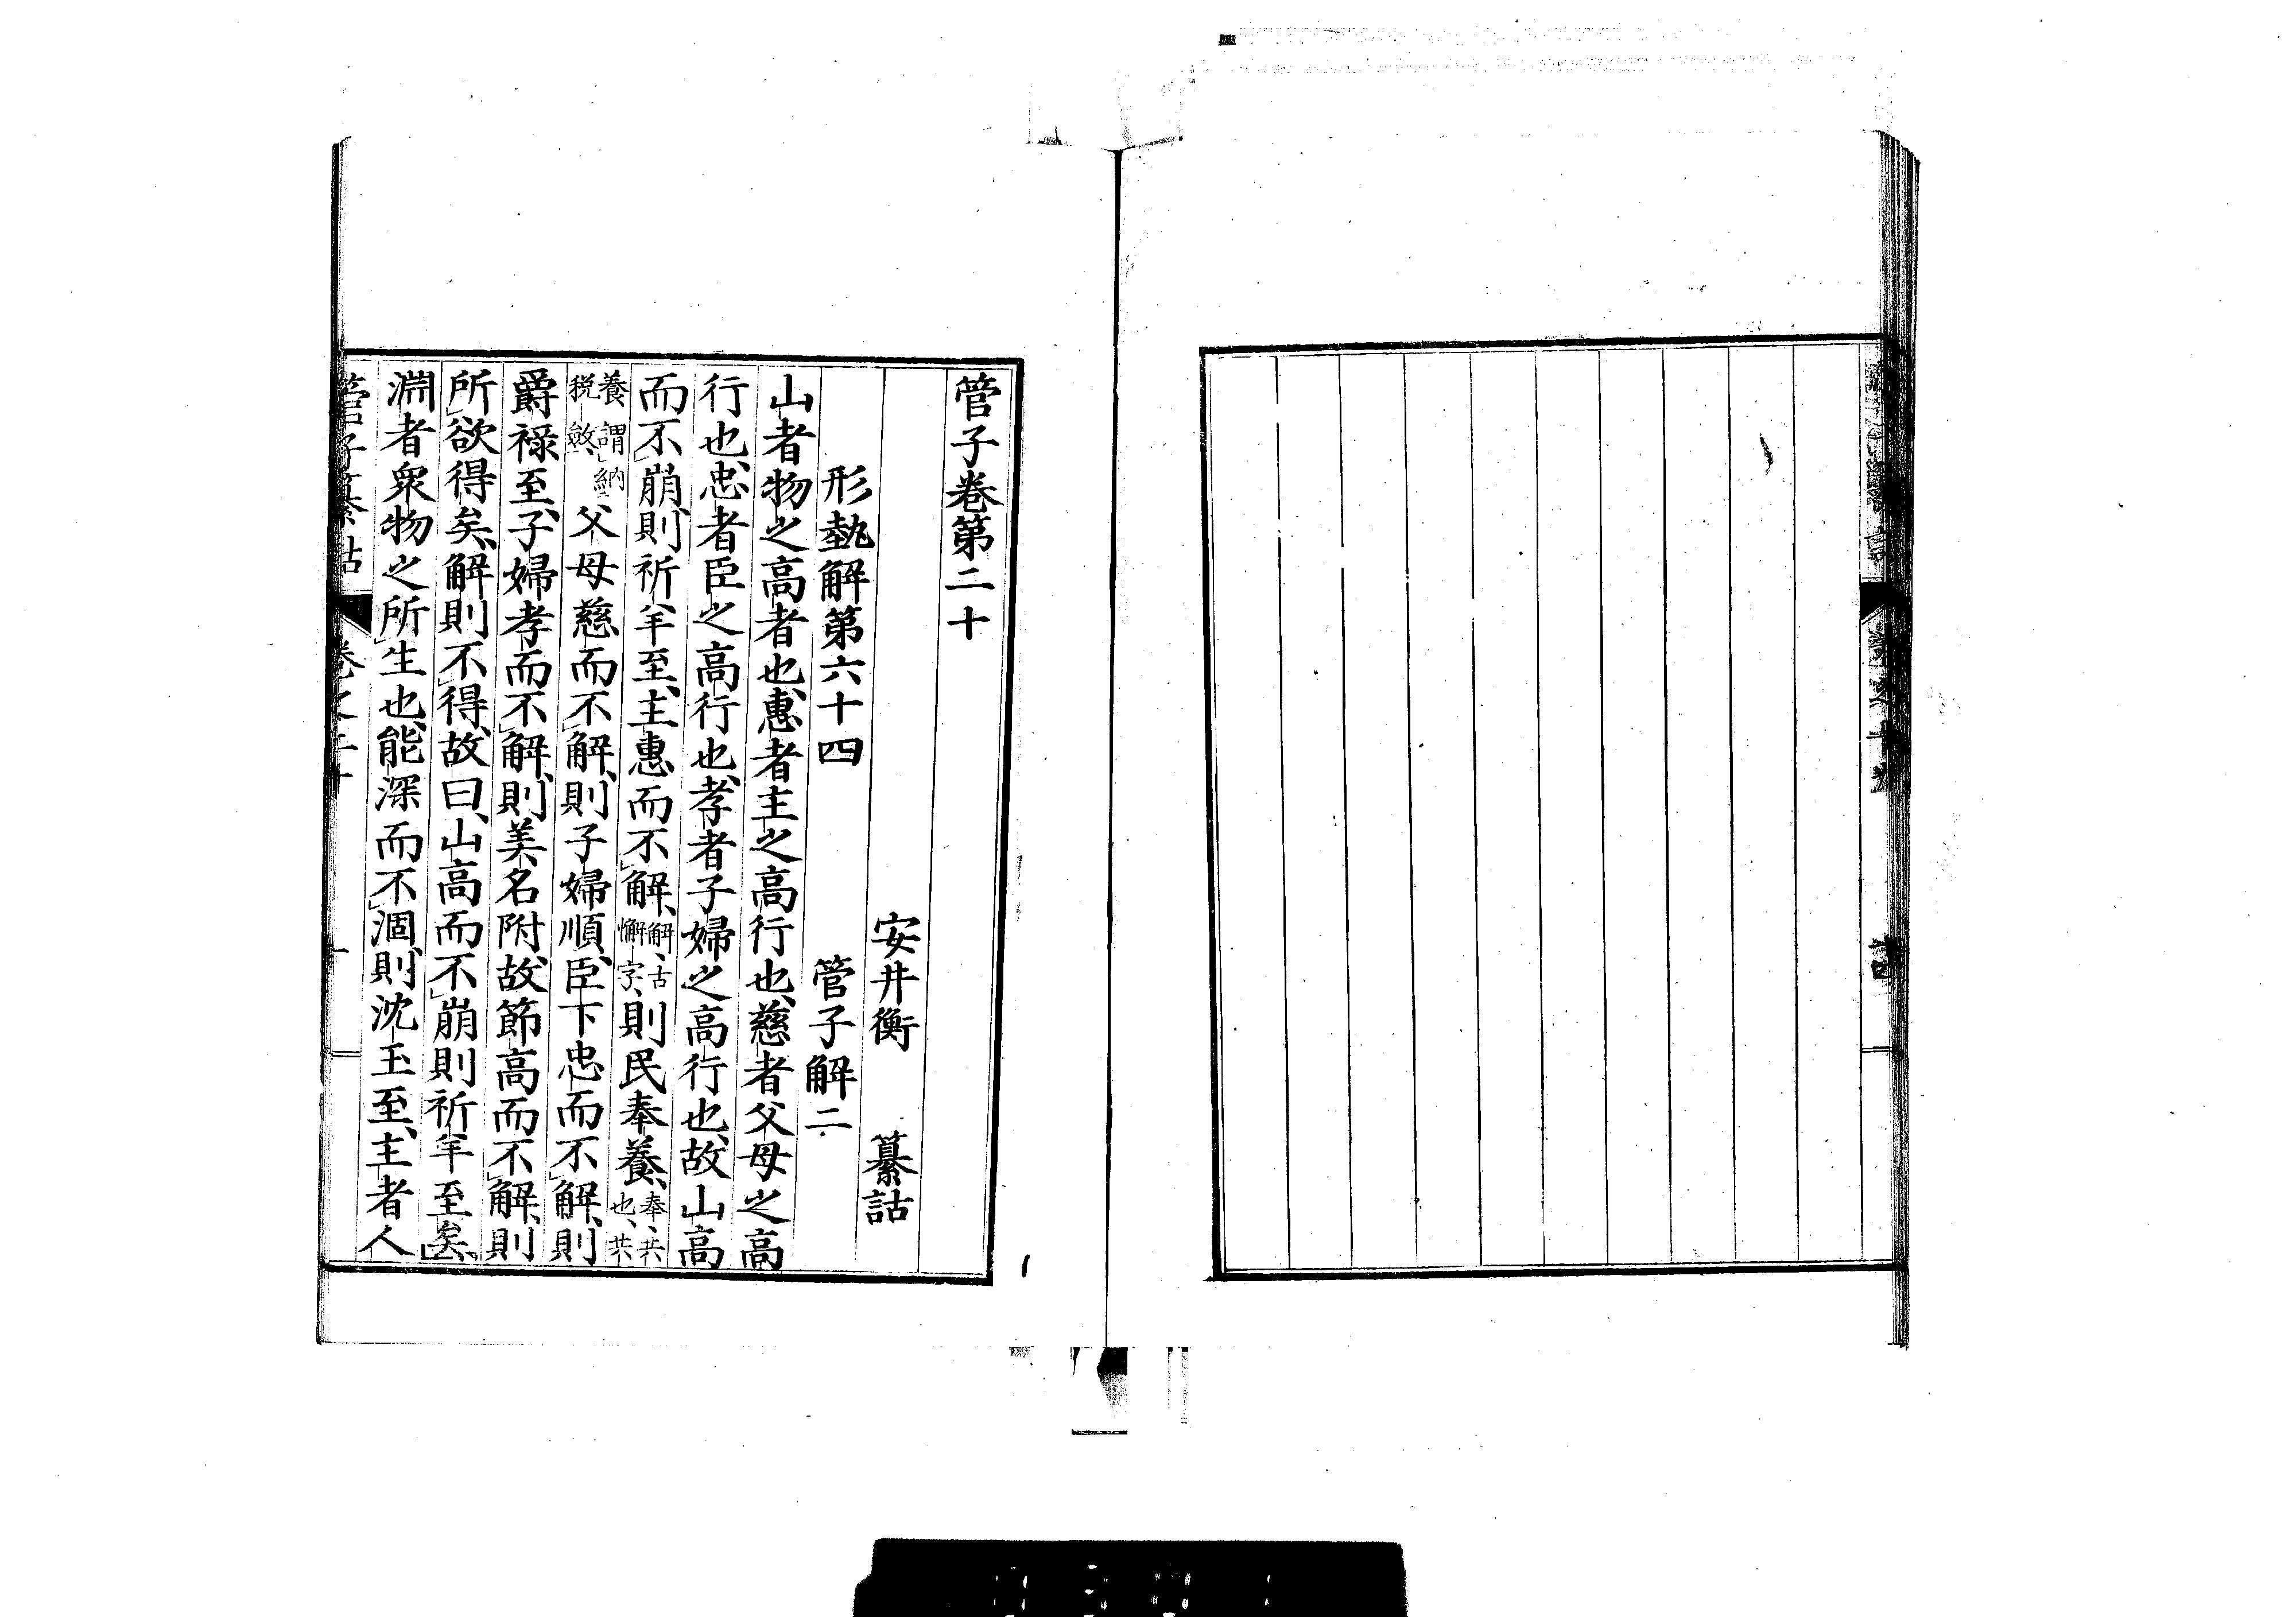 管子卷第二十
安井衡　纂詁
形埶解第六十四　管子解二
山者物之高者也、惠者主之高行也、慈者父母之高
行也、忠者臣之高行也、孝者子婦之高行也、故山高
而不崩、則祈羊至、主惠而不解、解、古懈字、則民奉養、奉、共也、共
養、謂納税斂、父母慈而不解、則子婦順、臣下忠而不解、則
爵祿至、子婦孝而不解、則美名附、故節高而不解、則
所欲得矣、解則不得、故曰、山高而不崩則祈羊至矣、
淵者衆物之所生也、能深而不涸、則沈玉至、主者人
管子纂詁　卷之二十　一